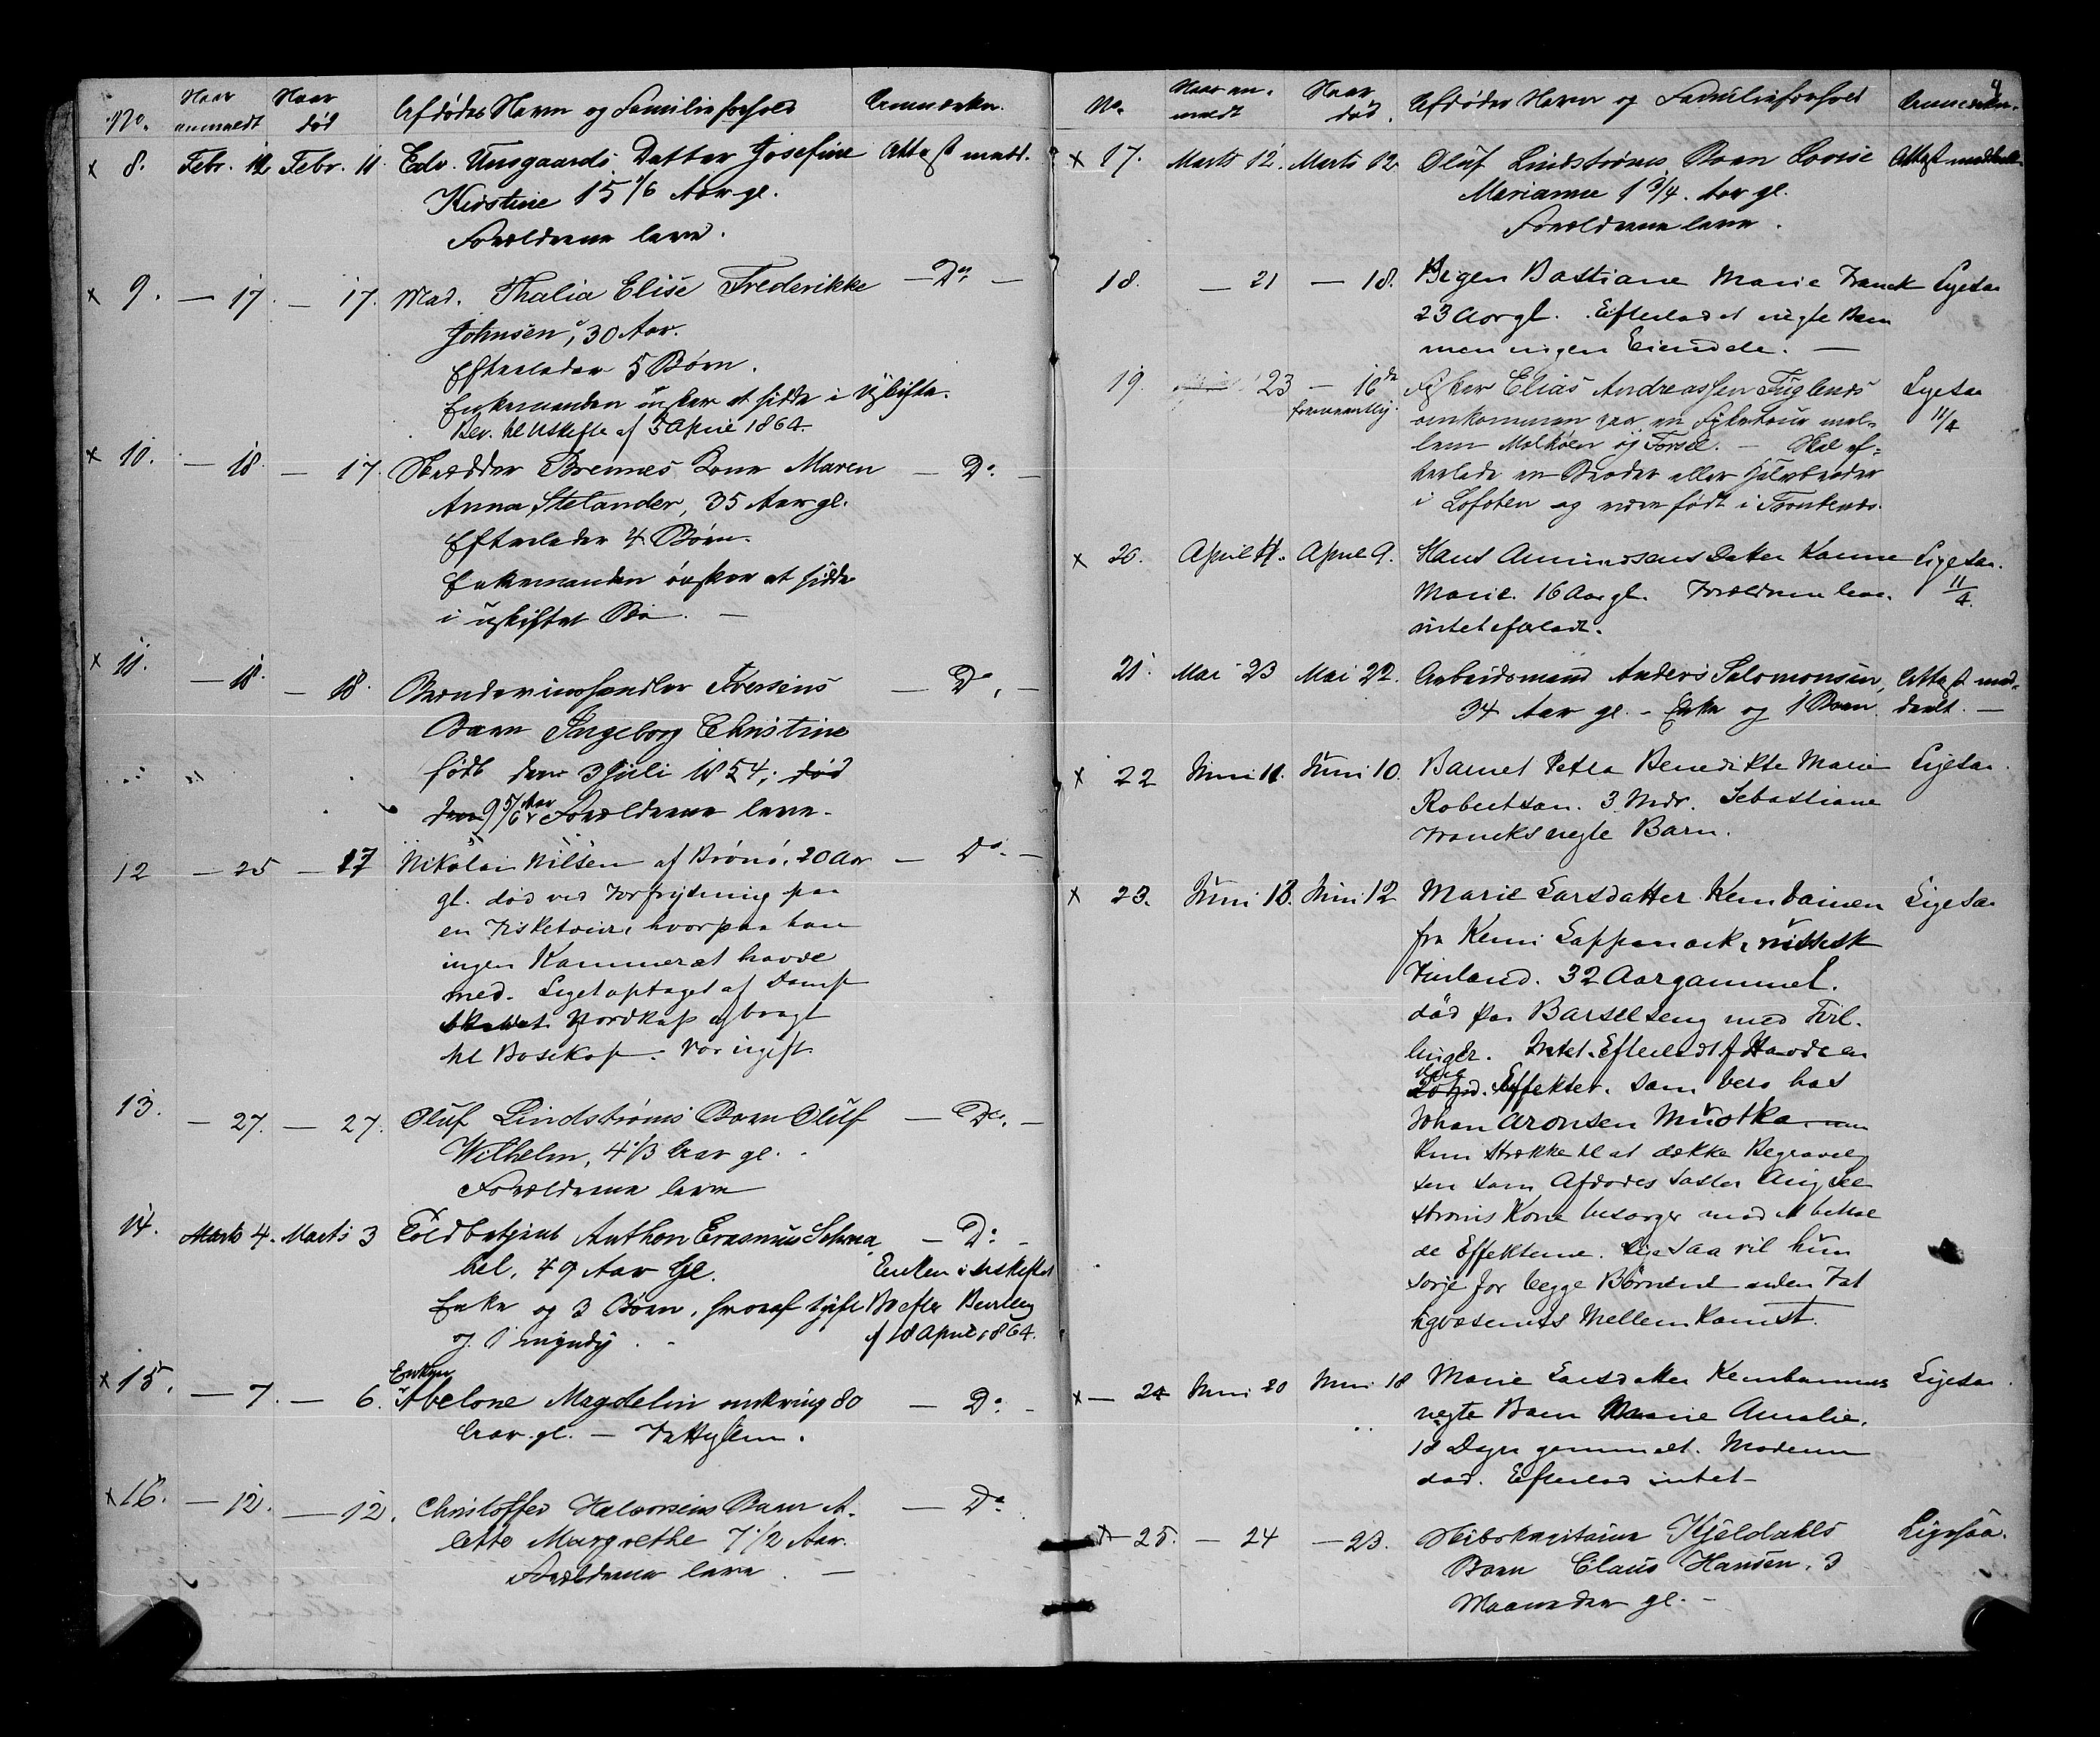 No. Naar anmeldt Naar død Afdødes Navn og Familieforhold Anmærkn.
x 8. Febr. 12 Febr. 11 Edv. Unsgaards Datter Josefine Attest medd.
Kirstine 15 1/6 Aar gl.
Forældrene leve.
x 9. — 17. — 17. Mad. Thalia Elise Frederikke — Do. —
Johnsen, 30 Aar.
Efterlader 5 Børn.
Enkemanden ønsker at sidde i Uskifte.
Bev. til Uskifte af 5 April 1864.
x 10. — 18. — 17. Skrædder Brennes Kone Maren — Do. —
Anna Stelander, 35 Aar gl.
Efterlader 4 Børn.
Enkemanden ønsker at sidde
i uskiftet Bo. —
x 11. — 18. — 18. Brændeviinshandler Iversens — Do. —
Barn Ingeborg Christine
født den 3 Juli 1854; død
den 9 5/6 Aar Forældrene leve.
12 — 25 — 17 Nikolai Nilsen af Brønø, 20 Aar — Do. —
gl. død ved Forfrysning paa
en Fisketour, hvorpaa han
ingen Kammerat havde
med. Liget optaget af Damp
skibet Nordkap og bragt
til Bosekop. Var ugift
13. — 27. — 27. Oluf Lindstrøms Barn Oluf — Do. —
Wilhelm, 4 1/3 Aar gl.
Forældrene leve
14. Marts 4. Marts 3 Toldbetjent Anthon Erasmus Schna — Do. —
bel, 49 Aar Gl. Enken i uskiftet
Enke og 3 Børn, hvoraf 1 gift Bo efter Bevilling
og 1 myndig. af 18 April 1864.
x 15. — 7. — 6. Enken Abelone Magdelin omkring 80 — Do. —
Aar gl. — Fattiglem.
x 16. — 12. — 12. Christoffer Halvorsens Barn A- — Do.
lette Margrethe 7 1/2 Aar.
Forældrene leve. —
9
No. Naar an- meldt Naar død. Afdødes Navn og Familieforhold Anmærkn.
x 17. Marts 12. Marts 12. Oluf Lindstrøms Barn Lovise Attest meddeelt
Marianne 1 3/4 Aar gl.
Forældrene leve.
18. — 21 — 18. Pigen Bastiane Marie Franck Ligesaa
23 Aar gl. Efterlod et uægte Barn
men ingen Eiendele. —
19. 23 — 16de Fisker Elias Andreassen Fuglenæs Ligesaa
formeentlig omkommen paa en Fisketour mel- 11/4
lem Melkøen og Forsøl. — Skal ef-
terlade en Broder eller Halvbroder
i Lofoten og være født i Trondenæs.
x 20. April 11. April 9. Hans Amundsens Datter Hanne Ligesaa.
Marie. 16 Aar gl. Forældrene leve. 11/4.
intet efterladt.
21. Mai 23 Mai 22. Arbeidsmand Anders Salomonsen, Attest med-
34 Aar gl. - Enke og 1 Barn. deelt. —
x 22 Juni 11. Juni 10. Barnet Petra Benedikte Marie Ligesaa.
Robertson. 3 Mdr. Sebastiane
Francks uegte Barn.
x 23. Juni 13. Juni 12 Marie Larsdatter Kembainen Ligesaa
fra Kemi Lappmark, russisk
Finland. 32 Aar gammel.
død paa Barselseng med Tvil-
linger. Intet Efterladt. Havde en
Effekter. som bero hos
Johan Aronsen Muotka
kun strække til at dække Begravel
sen som Afdødes Søster
strøms Kone besørger mod at behol
de Effekterne. Ligesaa vil hun
sørge for begge Børnene uden Fat
tigvæsenets Mellemkomst.
x — 24 Juni 20 Juni 18 Marie Larsdatter Kembainens Ligesaa.
uegte Barn Marie Amalie.
18 Dage gammelt. Moderen
død. Efterlod intet —
x — 25. — 24 — 23. Skibskapitaine Kjeldahls Ligesaa.
Barn Claus Hansen, 3
Maaneder gl. —